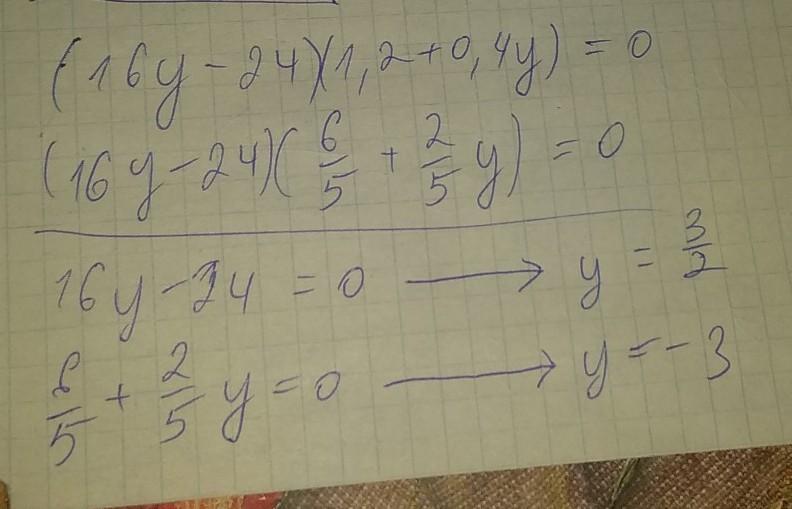 (16y-24)(1,2+0,4y)=0
(16y-24)(6/5 + 2/5 y) = 0
16y-24 = 0 → y = 3/2
6/5 + 2/5 y = 0 → y = -3